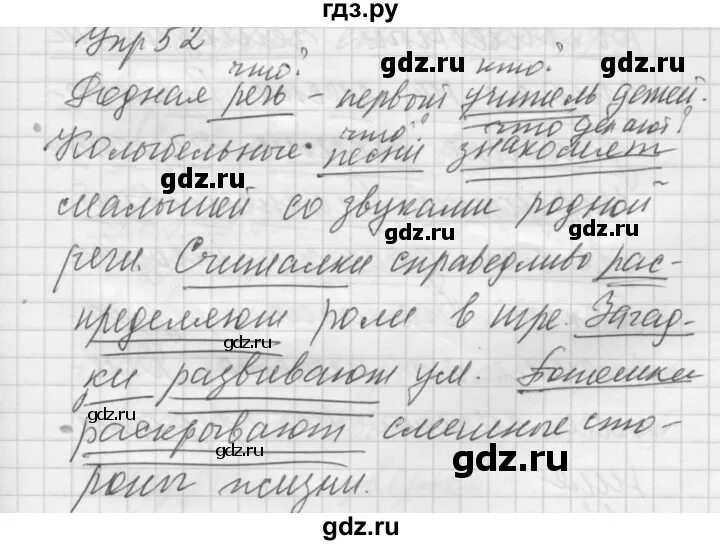 гдз.ру
Упр 52
что? кто?
Родная речь - первый учитель детей.
gdz.ru gdz.ru
что? что делают?
Колыбельные песни знакомят
gdz.ru gdz.ru
малышей со звуками родной
gdz.ru
речи. Считалки справедливо рас-
gdz.ru
пределяют роли в игре. Загад-
gdz.ru gdz.ru
ки развивают ум. Потешки
gdz.ru
раскрывают смешные сто-
gdz.ru gdz.ru
роны жизни.
gdz.ru